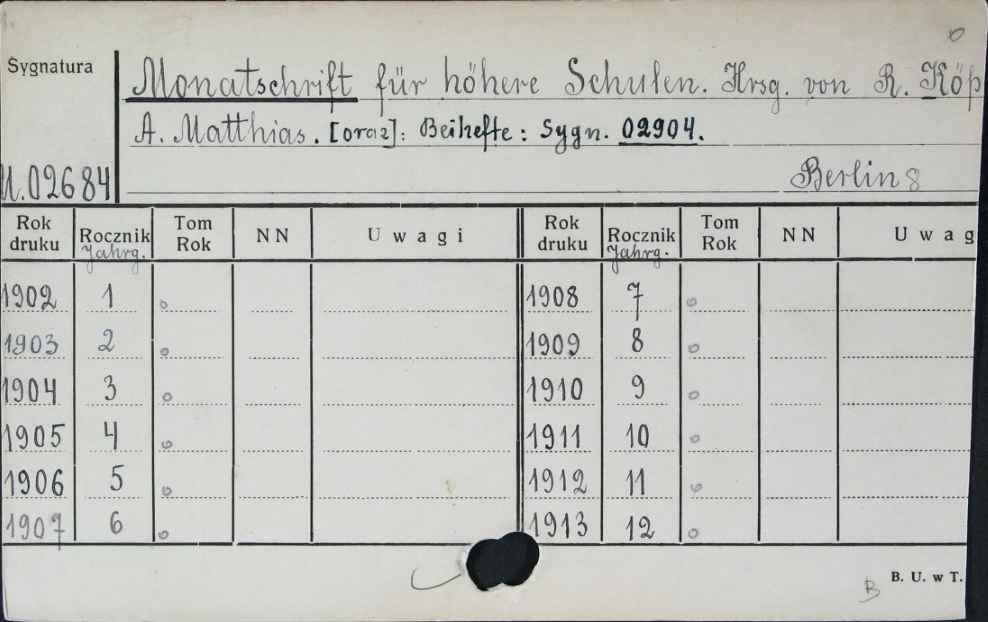 Sygnatura
Monatschrift für höhere Schulen. Hrsg. von R. Köp
A. Matthias. [oraz]: Beihefte: Sygn. 02904.
U.02684
Berlin 8
Rok druku Rocznik Jahrg. Tom Rok NN Uwagi Rok druku Rocznik Jahrg. Tom Rok NN Uwag
1902 1 1908 7
1903 2 1909 8
1904 3 1910 9
1905 4 1911 10
1906 5 1912 11
1907 6 1913 12
B. U. w T.
B